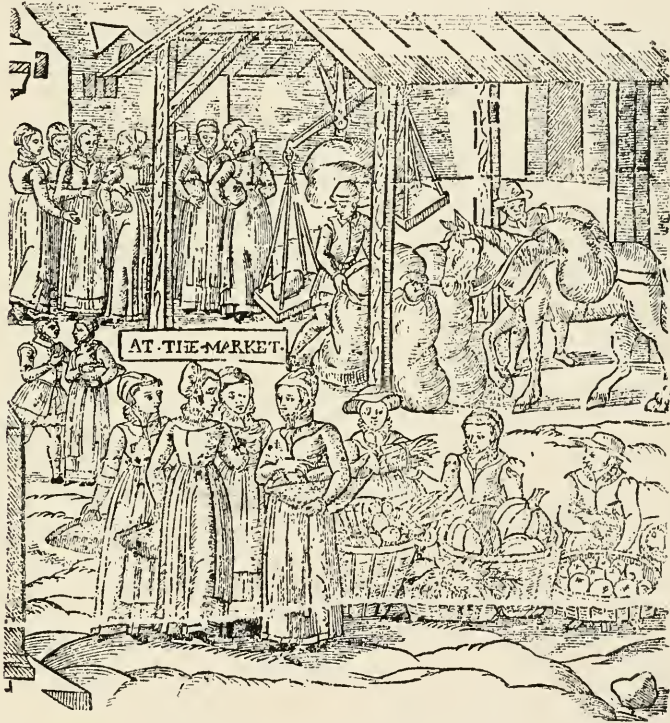 AT·THE·MARKET·